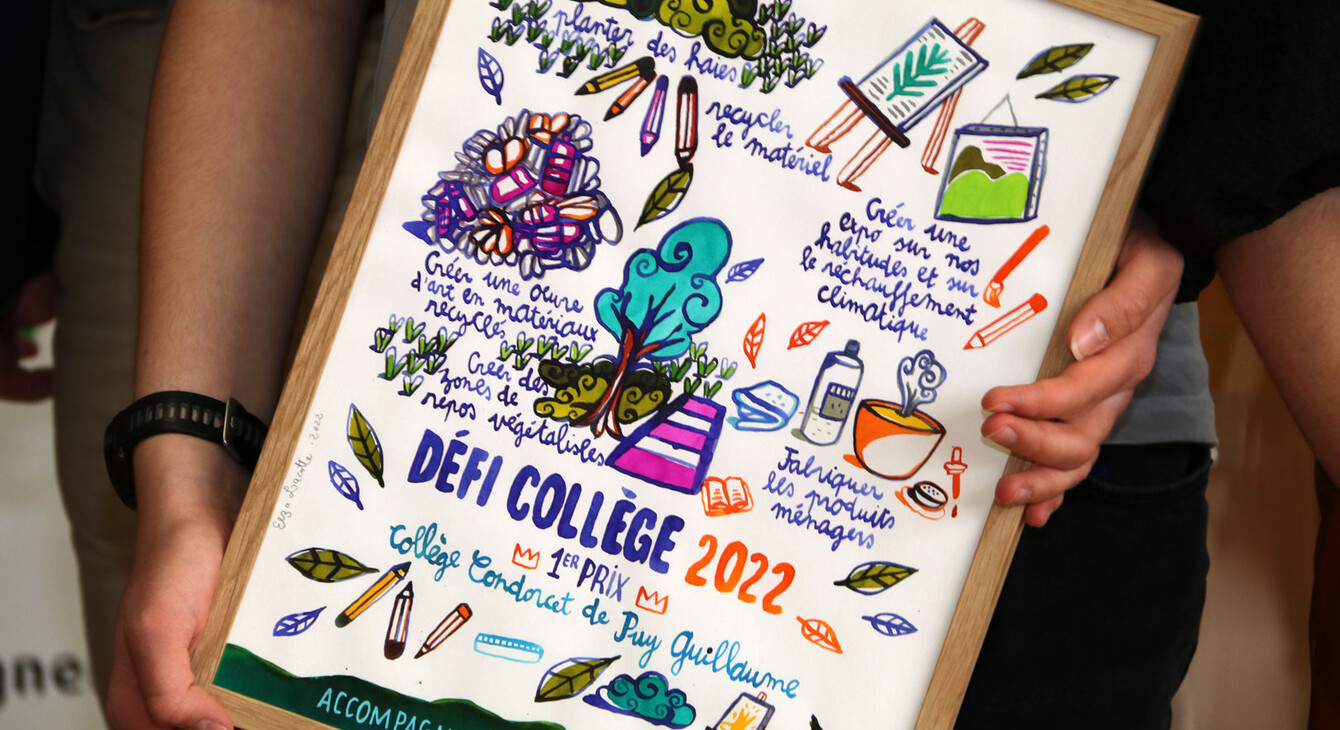 planter des haies
recycler
le matériel
Créer une
expo sur nos
habitudes et sur
le réchauffement
climatique
Créer une oeuvre
d'art en matériaux
recyclés
Créer des
zones de
repos végétalisées
Fabriquer
les produits
ménagers
DÉFI COLLÈGE 2022
1ER PRIX
Collège Condorcet de Puy Guillaume
Elza Lacotte . 2022
ACCOMPAGN
gne